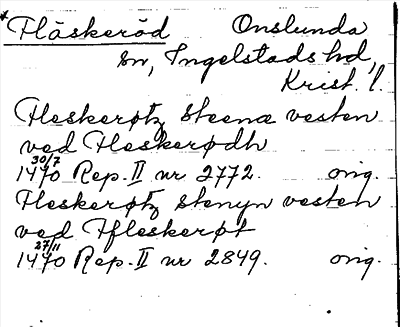 *Fläskeröd Onslunda
sn, Ingelstads hd,
Krist. l.
Fleskerøtz steenæ vesten
ved Fleskerødh
1470 30/7 Rep. II nr 2772. orig.
Fleskerøtz stenyn vesten
ved Ffleskerøt
1470 27/11 Rep. II nr 2849. orig.